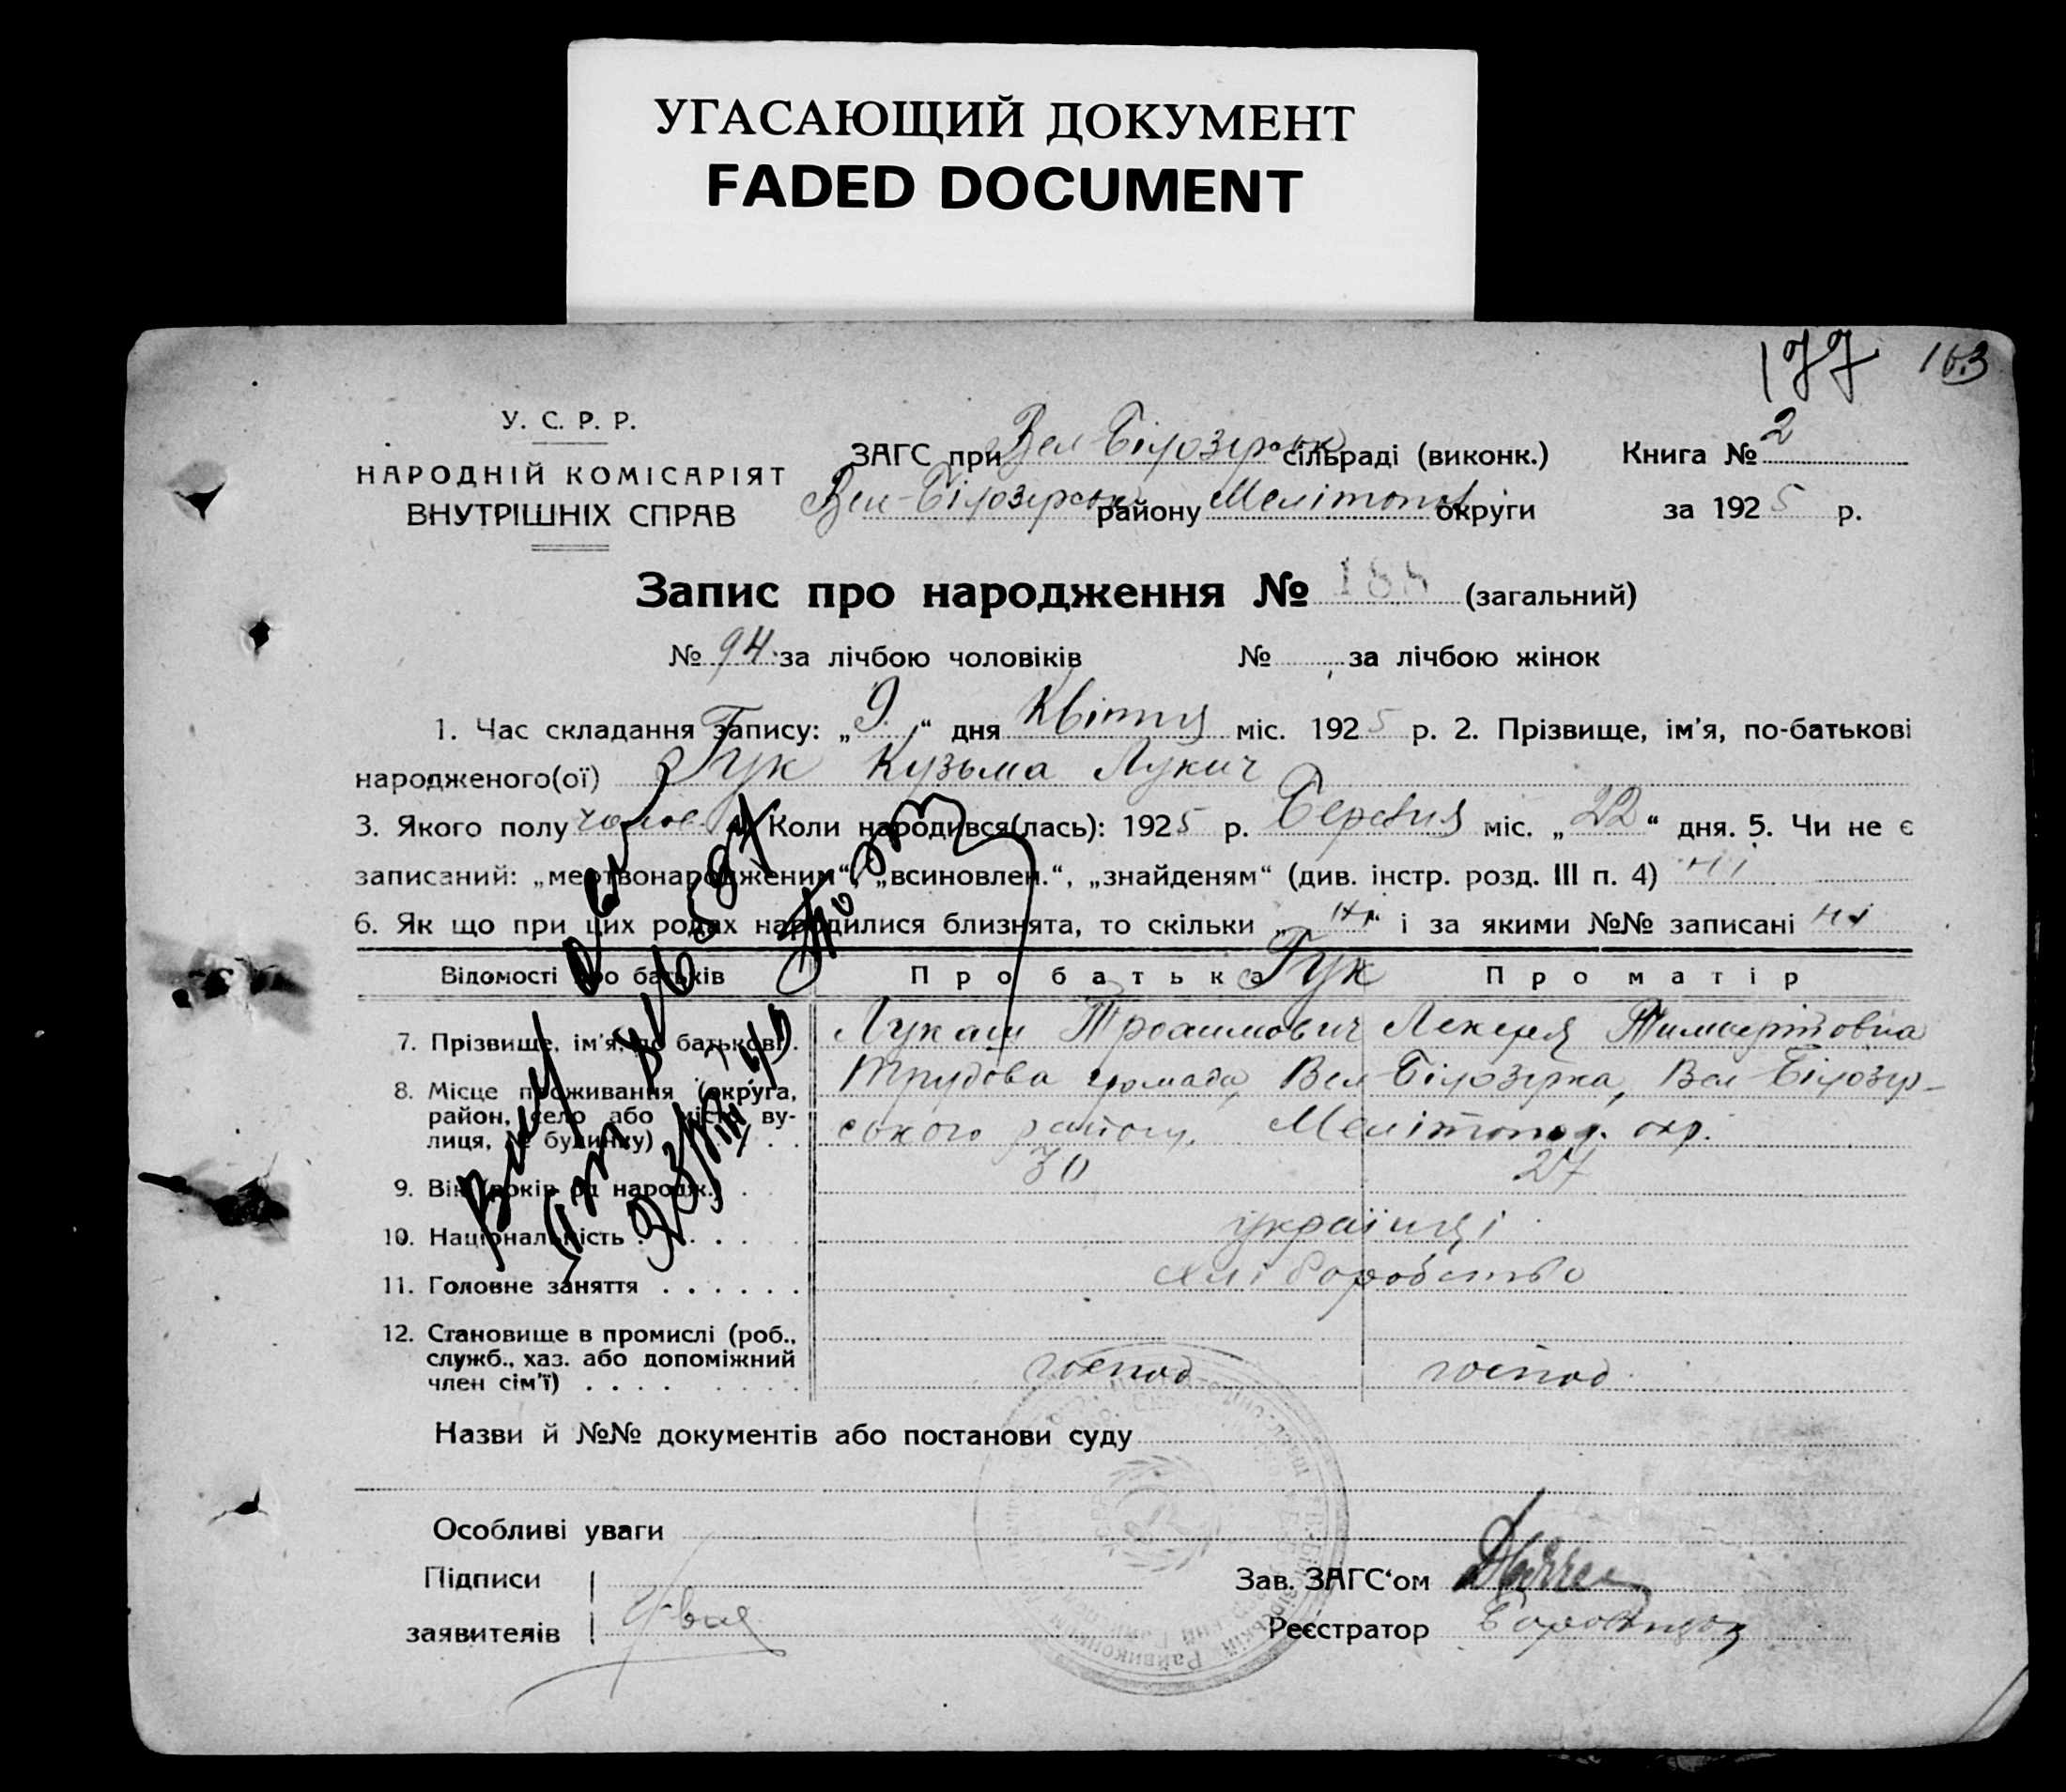 УГАСАЮЩИЙ ДОКУМЕНТ
FADED DOCUMENT
177 163
У. С. Р. Р.
НАРОДНІЙ КОМІСАРІЯТ
ВНУТРІШНІХ СПРАВ
ЗАГС при Вел Білозірськ сільраді (виконк.)
Вел-Білозірськ району Мелітопол округи
Книга № 2
за 1925 р.
Запис про народження № 188 (загальний)
№ 94 за лічбою чоловіків № за лічбою жінок
1. Час складання запису: „9“ дня Квітня міс. 1925 р. 2. Прізвище, ім'я, по-батькові
народженого(ої) Гук Кузьма Лукич
3. Якого полу чолов. Коли народився(лась): 1925 р. Березня міс. „22“ дня. 5. Чи не є
записаний: „мертвонародженим“, „всиновлен.“, „знайденям“ (див. інстр. розд. III п. 4) ні
6. Як що при цих родах народилися близнята, то скільки „ ні і за якими №№ записані ні
Відомості про батьків Про батька Гук Про матір
7. Прізвище, ім'я, по батькові. Лукаш Трохимович Лекеря
8. Місце проживання (округа, район, село або місто ву-лиця, № будинку) . . Трудова громада, Вел-Білозірка, Вел-Білозір-
ського району, Мелітопол. окр.
9. Вік (років од народж.) . 30 27
10. Національність . . . . . українці
11. Головне заняття . . . . . . хліборобство
12. Становище в промислі (роб.,
служб., хаз. або допоміжний
член сім'ї) . . . . господ господ.
Назви й №№ документів або постанови суду
Особливі уваги
Підписи
заявителів
Зав. ЗАГС'ом
Реєстратор